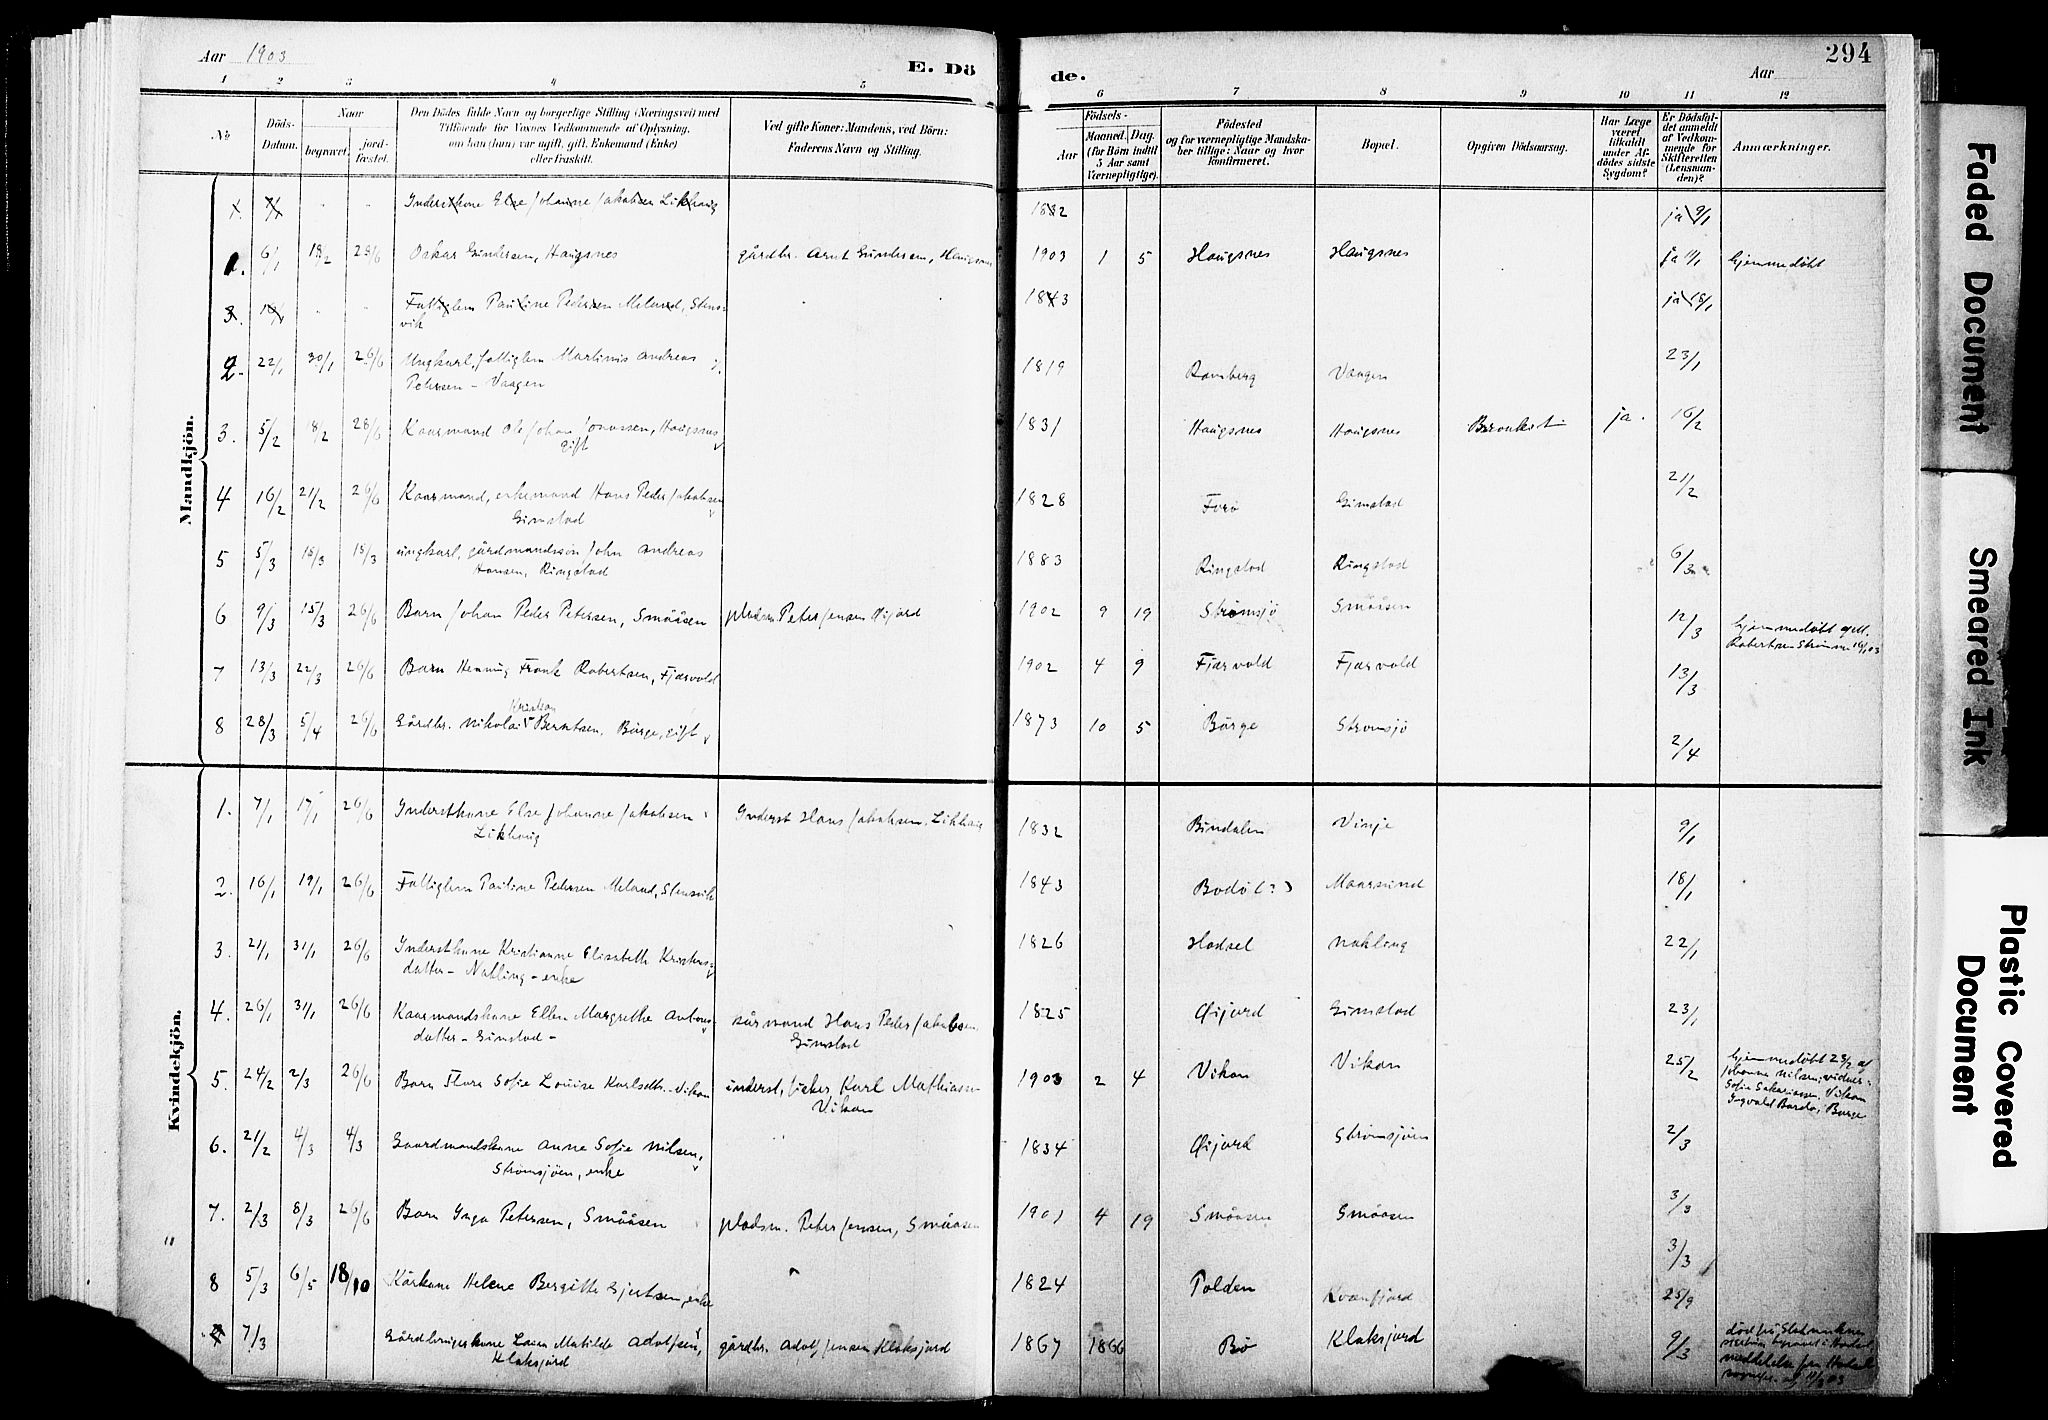 Aar 1903
E. Dö
de.
Aar
294
1 2 3 4 5 6 7 8 9 10 11 12
№
Döds-Datum.
Naar
begravet.
jord-fæstet.
Den Dödes fulde Navn og borgerlige Stilling (Næringsvei) med
Tilföiende for Voxnes Vedkommende af Oplysning,
om han (hun) var ugift, gift, Enkemand (Enke)
eller fraskilt.
Ved gifte Koner: Mandens, ved Börn:
Faderens Navn og Stilling.
Födsels-
Aar
Maaned. Dag.
(for Börn indtil
5 Aar samt
Værnepligtige).
Födested
og for værnepligtige Mandska-
ber tillige: Naar og hvor
konfirmeret.
Bopæl.
Opgiven Dödsaarsag.
Har Læge
været
tilkaldt
under Af-
dödes sidste
Sygdom?
Er Dödsfal-
det anmeldt
af Vedkom-
mende for
Skifteretten
(Lensman-
den)?
Anmærkninger.
Mandkjön.
Inderstkone Else Johanne Jakobsen Likhaug 1832 ja 9/1
6/1 18/2 28/6 Oskar Gundersen, Haugsnes gårdbr. Arnt Gundersen, Haugsnes 1903 1 5 Haugsnes Haugsnes ja Hjemmedøbt
3. Fattiglem Pauline Pedersen Meland, Stens-
vik 1843 ja 18/1
2. 22/1 30/1 26/6 Ungkarl, fattiglem Martinus Andreas
Petersen - Vaagen 1819 Ramberg Vaagen 23/1
3. 5/2 8/2 28/6 Kaarmand Ole Johan Jonassen, Haugsnes
gift 1831 Haugsnes Haugsnes Bronkit ja. 16/2
4 16/2 21/2 26/6 Kaarmand, enkemand Hans Peder Jakobsen
Gimstad 1828 Forø Gimstad 21/2
5 5/3 15/3 15/3 ungkarl, gårdmandssøn John Andreas
Hansen, Ringstad 1883 Ringstad Ringstad 6/3
6 9/3 15/3 26/6 Barn Johan Peder Petersen, Smååsen pladsm. Peter Jensen Øijord 1902 9 19 Strømsjö Smååsen 12/3
7 13/3 22/3 26/6 Barn Henning Frank Robertsen, Fjærvold 1902 4 9 Fjærvold Fjærvold 13/3 Hjemmedøbt
8 28/3 5/4 26/6 Gårdbr. Nikolai Berntsen, Børge, gift 1873 10 5 Børge Strømsjö 2/4
Kvindekjön.
1. 7/1 17/1 26/6 Inderstkone Else Johanne Jakobsen
Likhaug Inderst Hans Jakobsen, Likhaug 1832 Bindalen Vinje 9/1
2. 16/1 19/1 26/6 Fattiglem Pauline Pedersen Meland, Stensvik 1843 Bodö (?) Maarsund 18/1
3. 21/1 31/1 26/6 Inderstkone Kristianne Elisabeth Kristens-
datter - Nakling - enke 1826 Hadsel Nakling 22/1
4. 26/1 31/1 26/6 Kaarmandskone Ellen Margrethe Antons-
datter - Gimstad - kårmand Hans Peder Jakobsen,
Gimstad 1825 Øijord Gimstad 23/1
5. 24/2 2/3 26/6 Barn Flora Sofie Louise Karlsdtr. - Vikan inderst, fisker, Karl Mathiasen
Vikan 1903 2 4 Vikan Vikan 25/2 Hjemmedøbt 23/2 af
Johanna Nilsen, vidner:
Sofie Sakariassen, Vikan
Ingvald Bardo, Børge
6. 21/2 4/3 4/3 Gaardmandskone Anne Sofie Nilsen,
Strømsjöen, enke 1834 Øijord Strømsjöen 2/3
7. 2/3 8/3 26/6 Barn Inga Petersen, Smååsen pladsm. Peter Jensen, Smååsen 1901 4 19 Smååsen Smååsen 3/3
8 5/3 6/5 18/10 Kårkone Helene Bergitte Gjertsen, enke 1824 Polden Kvæfjord 3/3 25/9
7/3 Gårdbrugerkone Laura Matilde Adolfsen,
Klaksjord gårdbr. Adolf Jensen, Klaksjord 1867 1866 Bø Klaksjord 9/3
Faded Document
Smeared Ink
Plastic Covered
Document